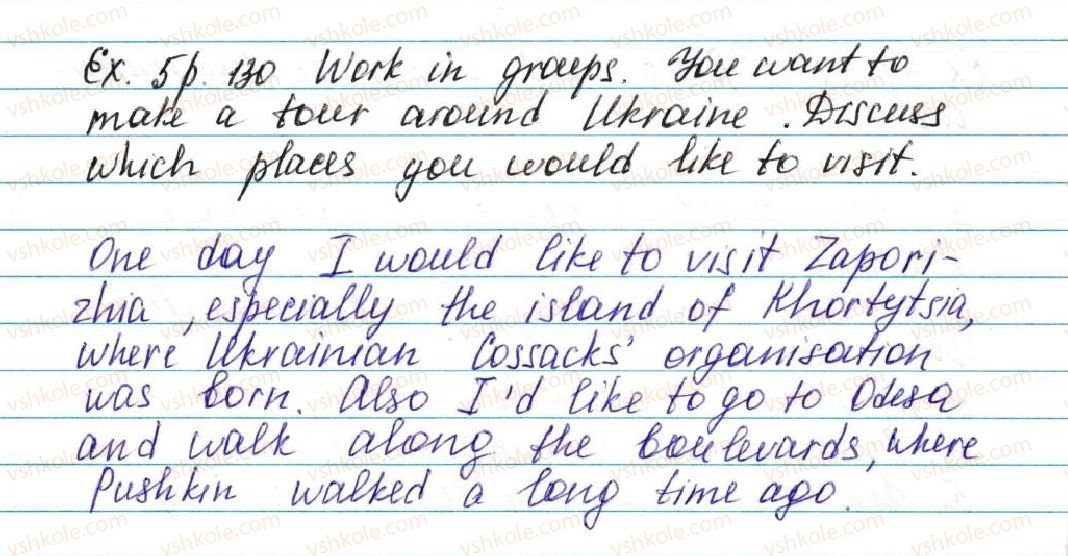 Ex. 5 p. 130 Work in groups. You want to
make a tour around Ukraine. Discuss
which places you would like to visit.
One day I would like to visit Zapori-
zhia, especially the island of Khortytsia,
where Ukrainian Cossacks' organisation
was born. Also I'd like to go to Odesa
and walk along the boulevards, where
Pushkin walked a long time ago.
vshkole.com